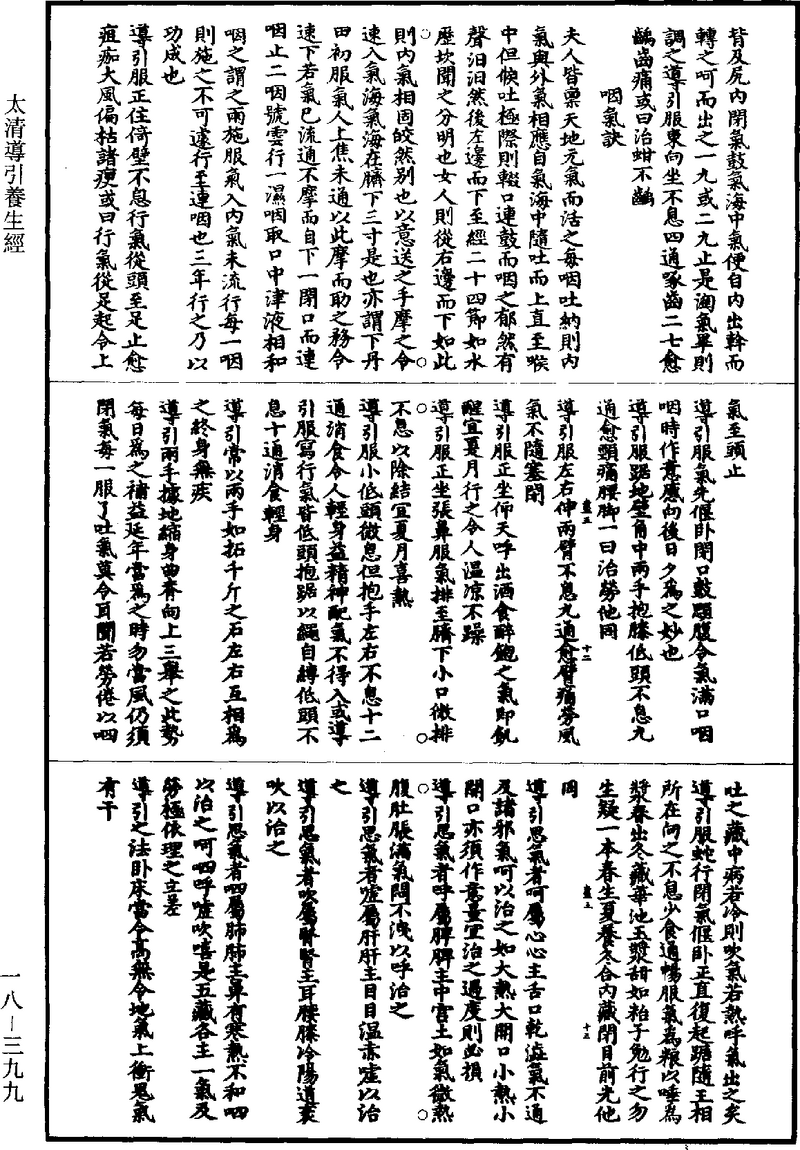 背及尻內閉氣鼓氣海中氣使自內出斡而
轉之呵而出之一九或二九止是淘氣畢則
調之導引服東向坐不息四通啄齒二七愈
齲齒痛或曰治蚶不齲
咽氣訣
夫人皆稟天地元氣而活之每咽吐納則內
氣與外氣相應自氣海中隨吐而上直至喉
中但候吐極際則輟口連鼓而咽之郁然有
聲汩汩然後左邊而下至經二十四節如水
歷坎聞之分明也女人則從右邊而下如此
則內氣相固皎然別也以意送之手摩之令
速入氣海氣海在臍下三寸是也亦謂下丹
田初服氣人上焦未通以此摩而助之務令
速下若氣已流通不摩而自下一閉口而連
咽止二咽號雲行一濕咽取口中津液相和
咽之謂之雨施服氣入內氣未流行每一咽
則施之不可遽行至連咽也三年行之乃以
功成也
導引服正住倚壁不息行氣從頭至足止愈
疽痂大風偏枯諸痺或曰行氣從足起令上
氣至頭止
導引服氣先偃卧閉口鼓頤腹令氣滿口咽
咽時作意應向後日夕為之妙也
導引服踞地壁角中兩手抱膝低頭不息九
通愈頸痛腰脚一曰治勞他同
盡五
十二
導引服左右伸兩臂不息九通愈臂痛勞風
氣不隨塞閉
導引服正坐仰天呼出酒食醉飽之氣即飢
醒宜夏月行之令人溫涼不躁
導引服正坐張鼻服氣排至臍下小口微排
不息以除結宜夏月喜熱
導引服小低頭微息但抱手左右不息十二
通消食令人輕身益精神配氣不得入或導
引服寫行氣皆低頭抱踞以繩自縛低頭不
息十通消食輕身
導引常以兩手如拓千斤之石左右互相為
之終身無疾
導引兩手據地縮身曲脊向上三舉之此勢
每日為之補益延年當為之時勿當風仍須
閉氣每一服了吐氣莫令耳聞若勞倦以呬
吐之藏中病若冷則吹氣若熱呼氣出之矣
導引服蛇行閉氣偃卧正直復起踞隨王相
所在向之不息少食通暢服氣為糧以唾為
漿春出冬藏華池玉漿甜如粭子勉行之勿
生疑一本春生夏養冬合內藏閉目前光他
盡五
十三
同
導引思氣者呵屬心心主舌口乾澁氣不通
及諸邪氣呵以治之如大熱大開口小熱小
開口亦須作意量宜治之過度則必損
導引思氣者呼屬脾脾主中宮土如氣微熱
腹肚脹滿氣悶不洩以呼治之
導引思氣者噓屬肝肝主目目溫赤噓以治
之
導引思氣者吹屬腎腎主耳腰膝冷陽道衰
吹以治之
導引思氣者呬屬肺肺主鼻有寒熱不和呬
以治之呵呬呼噓吹嘻是五藏各主一氣及
勞極依理之立差
導引之法卧床當令高無令地氣上衝鬼氣
有干
太清導引養生經
一八-三九九